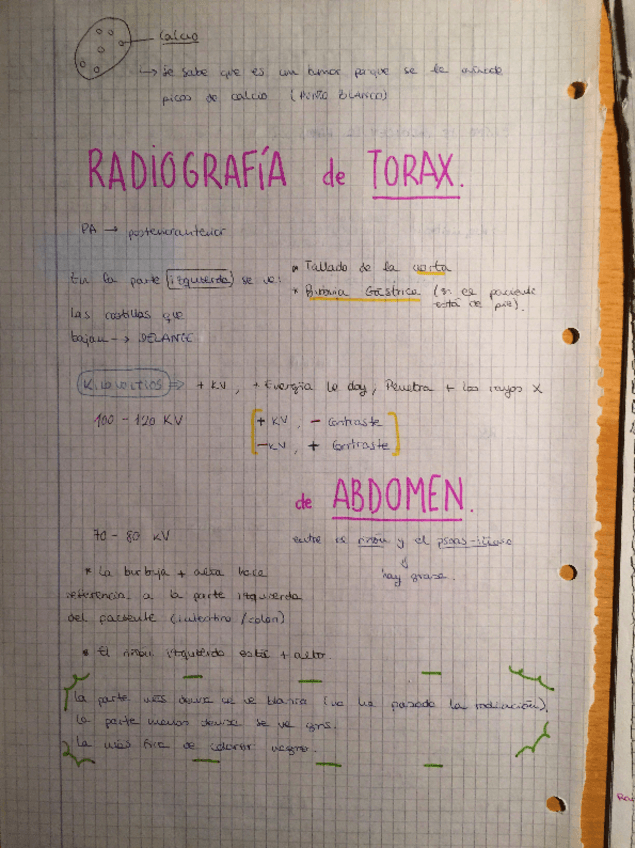 Calcio
→ se sabe que es un tumor porque se le añade
picos de calcio (PUNTO BLANCO)
RADIOGRAFÍA de TORAX.
PA → posteroranterior
En la parte izquierda se ve:
* Tallado de la aorta
* Burbuja Gástrica (si el paciente
está de pie).
Las costillas que
bajan --> DELANTE
Kilovoltios => + KV, + Energía le doy, Penetra + los rayos X
100 - 120 KV
+ KV, - Contraste
- KV, + Contraste
de ABDOMEN.
70 - 80 KV
entre el riñon y el psoas-iliaco
↓
hay grasa.
* La burbuja + alta hace
referencia a la parte izquierda
del paciente (intestino / colon)
* El riñon izquierdo está + alto.
La parte más densa se ve blanca (no ha pasado la radiación).
La parte menos densa se ve gris.
La más fina de color negro.